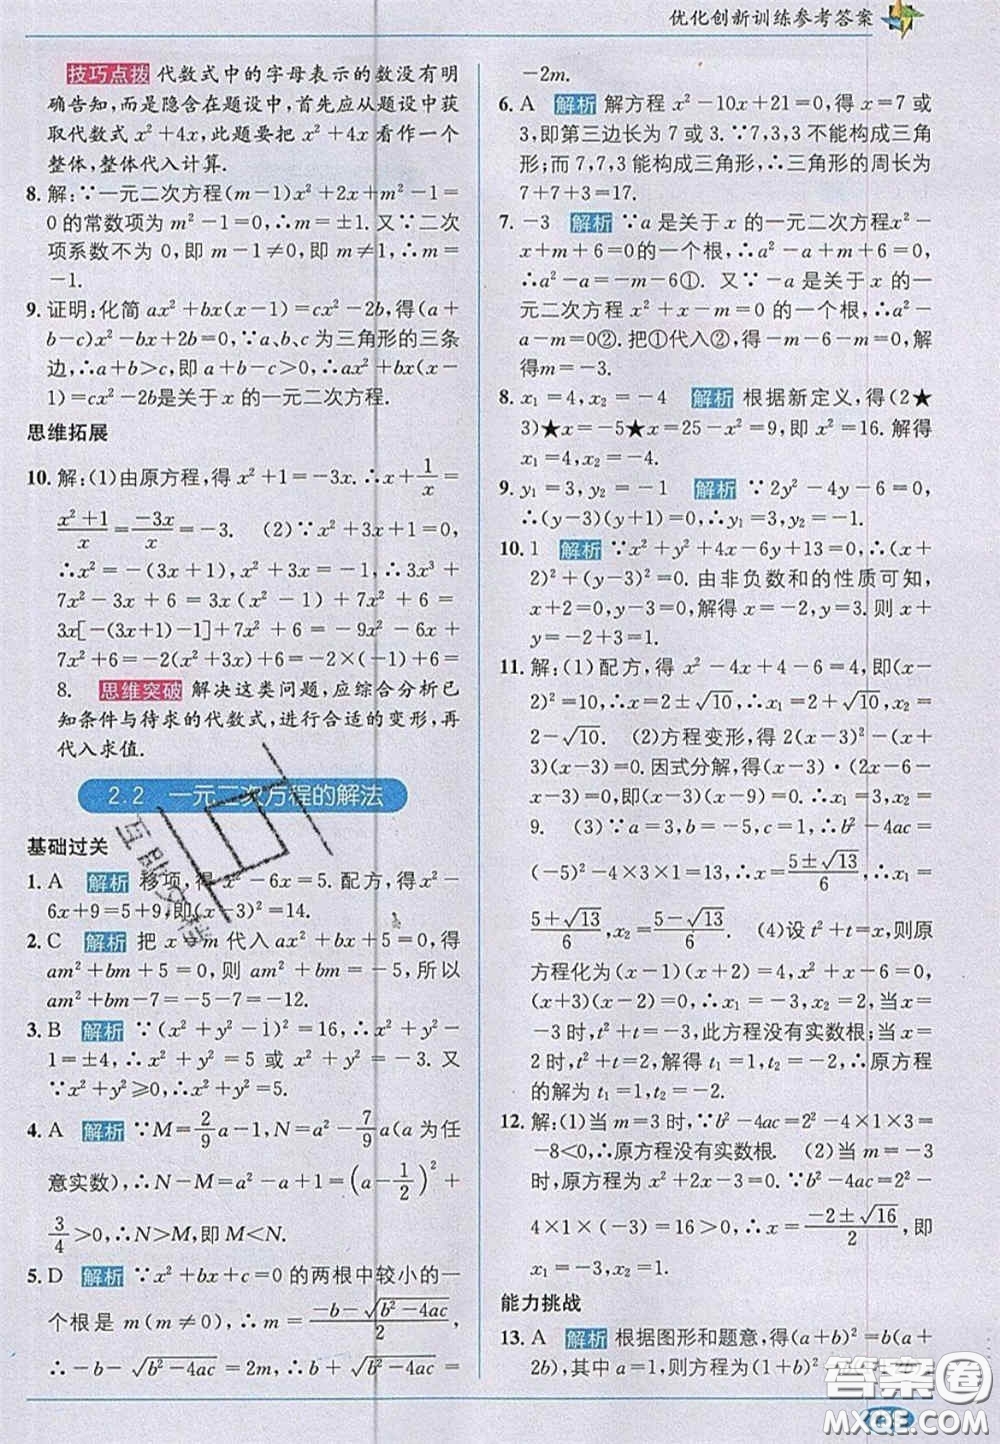 优化创新训练参考答案
技巧点拨 代数式中的字母表示的数没有明
确告知,而是隐含在题设中,首先应从题设中获
取代数式 x²+4x,此题要把 x²+4x 看作一个
整体,整体代入计算.
8. 解:∵一元二次方程(m−1)x²+2x+m²−1=
0的常数项为 m²−1=0,∴m=±1. 又∵二次
项系数不为 0,即 m−1≠0,即 m≠1,∴m=
−1.
9. 证明:化简 ax²+bx(x−1)=cx²−2b,得(a+
b−c)x²−bx+2b=0,∵a、b、c为三角形的三条
边,∴a+b>c,即 a+b−c>0,∴ax²+bx(x−
1)=cx²−2b是关于 x 的一元二次方程.
思维拓展
10. 解:(1)由原方程,得 x²+1=−3x.∴x+1/x=
(x²+1)/x=−3x/x=−3. (2)∵x²+3x+1=0,
∴x²=−(3x+1),x²+3x=−1,∴3x³+
7x²−3x+6=3x(x²−1)+7x²+6=
3x[−(3x+1)−1]+7x²+6=−9x²−6x+
7x²+6=−2(x²+3x)+6=−2×(−1)+6=
8. 思维突破 解决这类问题,应综合分析已
知条件与待求的代数式,进行合适的变形,再
代入求值.
2.2 一元二次方程的解法
基础过关
1. A 解析 移项,得 x²−6x=5. 配方,得 x²−
6x+9=5+9,即(x−3)²=14.
2. C 解析 把 x=m 代入 ax²+bx+5=0,得
am²+bm+5=0,则 am²+bm=−5,所以
am²+bm−7=−5−7=−12.
3. B 解析 ∵(x²+y²−1)²=16,∴x²+y²−
1=±4,∴x²+y²=5 或 x²+y²=−3. 又
∵x²+y²≥0,∴x²+y²=5.
4. A 解析 ∵M=2/9a−1,N=a²−7/9a(a 为任
意实数),∴N−M=a²−a+1=(a−1/2)²+
3/4>0,∴N>M,即 M<N.
5. D 解析 ∵x²+bx+c=0的两根中较小的一
个根是 m,∴m=(−b−√(b²−4ac))/2,
∴−b−√(b²−4ac)=2m,∴b+√(b²−4ac)=
−2m.
6. A 解析 解方程 x²−10x+21=0,得 x=7 或
3,即第三边长为 7 或 3.∵7,3,3 不能构成三角
形;而 7,7,3 能构成三角形,∴三角形的周长为
7+7+3=17.
7. −3 解析 ∵a 是关于 x 的一元二次方程x²−
x+m+6=0的一个根,∴a²−a+m+6=0,
∴a²−a=−m−6①. 又∵−a 是关于 x 的一
元二次方程 x²+x−m=0 的一个根,∴a²−
a−m=0②. 把①代入②,得−m−6−m=0,解
得m=−3.
8. x₁=4,x₂=−4 解析 根据新定义,得(2★
3)★x=−5★x=25−x²=9,即 x²=16. 解得
x₁=4,x₂=−4.
9. y₁=3,y₂=−1 解析 ∵2y²−4y−6=0,
∴(y−3)(y+1)=0,∴y₁=3,y₂=−1.
10. 1 解析 ∵x²+y²+4x−6y+13=0,∴(x+
2)²+(y−3)²=0. 由非负数和的性质可知,
x+2=0 且 y−3=0,解得 x=−2,y=3. 则 x+
y=−2+3=1.
11. 解:(1)配方,得 x²−4x+4−6=4,即(x−
2)²=10,∴x=2±√10,∴x₁=2+√10,x₂=
2−√10. (2)方程变形,得 2(x−3)²−(x+
3)(x−3)=0. 因式分解,得(x−3)(2x−6−
x−3)=0,∴x−3=0 或 x−9=0,∴x₁=3,x₂=
9. (3)∵a=3,b=−5,c=1,∴b²−4ac=
(−5)²−4×3×1=13,∴x=(5±√13)/6,∴x₁=
(5+√13)/6,x₂=(5−√13)/6. (4)设 t²+t=x,则原
方程化为(x−1)(x+2)=4,∴x²+x−6=0,
(x+3)(x−2)=0,∴x₁=−3,x₂=2. 当 x=
−3 时,t²+t=−3,此方程没有实数根;当 x=
2时,t²+t=2,解得 t₁=1,t₂=−2. ∴原方程
的解为 t₁=1,t₂=−2.
12. 解:(1)当 m=3 时,∵b²−4ac=2²−4×1×3=
−8<0,∴原方程没有实数根. (2)当 m=−3
时,原方程变为 x²+2x−3=0. ∵b²−4ac=2²−
4×1×(−3)=16>0,∴x=(−2±√16)/2,即
x₁=−3,x₂=1.
能力挑战
13. A 解析 根据图形和题意,得(a+b)²=b(a+
2b),其中 a=1,则方程为(1+b)²=
答案圈
MXQE.COM